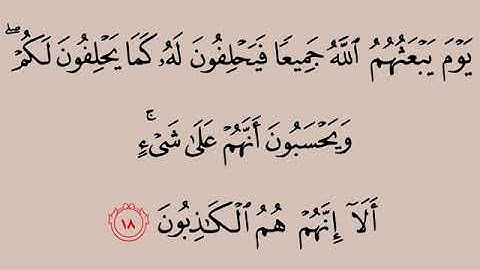 يَوْمَ يَبْعَثُهُمُ ٱللَّهُ جَمِيعًا فَيَحْلِفُونَ لَهُۥ كَمَا يَحْلِفُونَ لَكُمْ ۖ
وَيَحْسَبُونَ أَنَّهُمْ عَلَىٰ شَىْءٍ ۚ
أَلَآ إِنَّهُمْ هُمُ ٱلْكَٰذِبُونَ ١٨